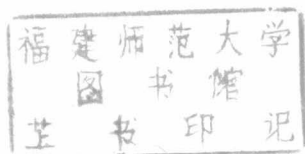 福建师范大学
图书馆
书印记